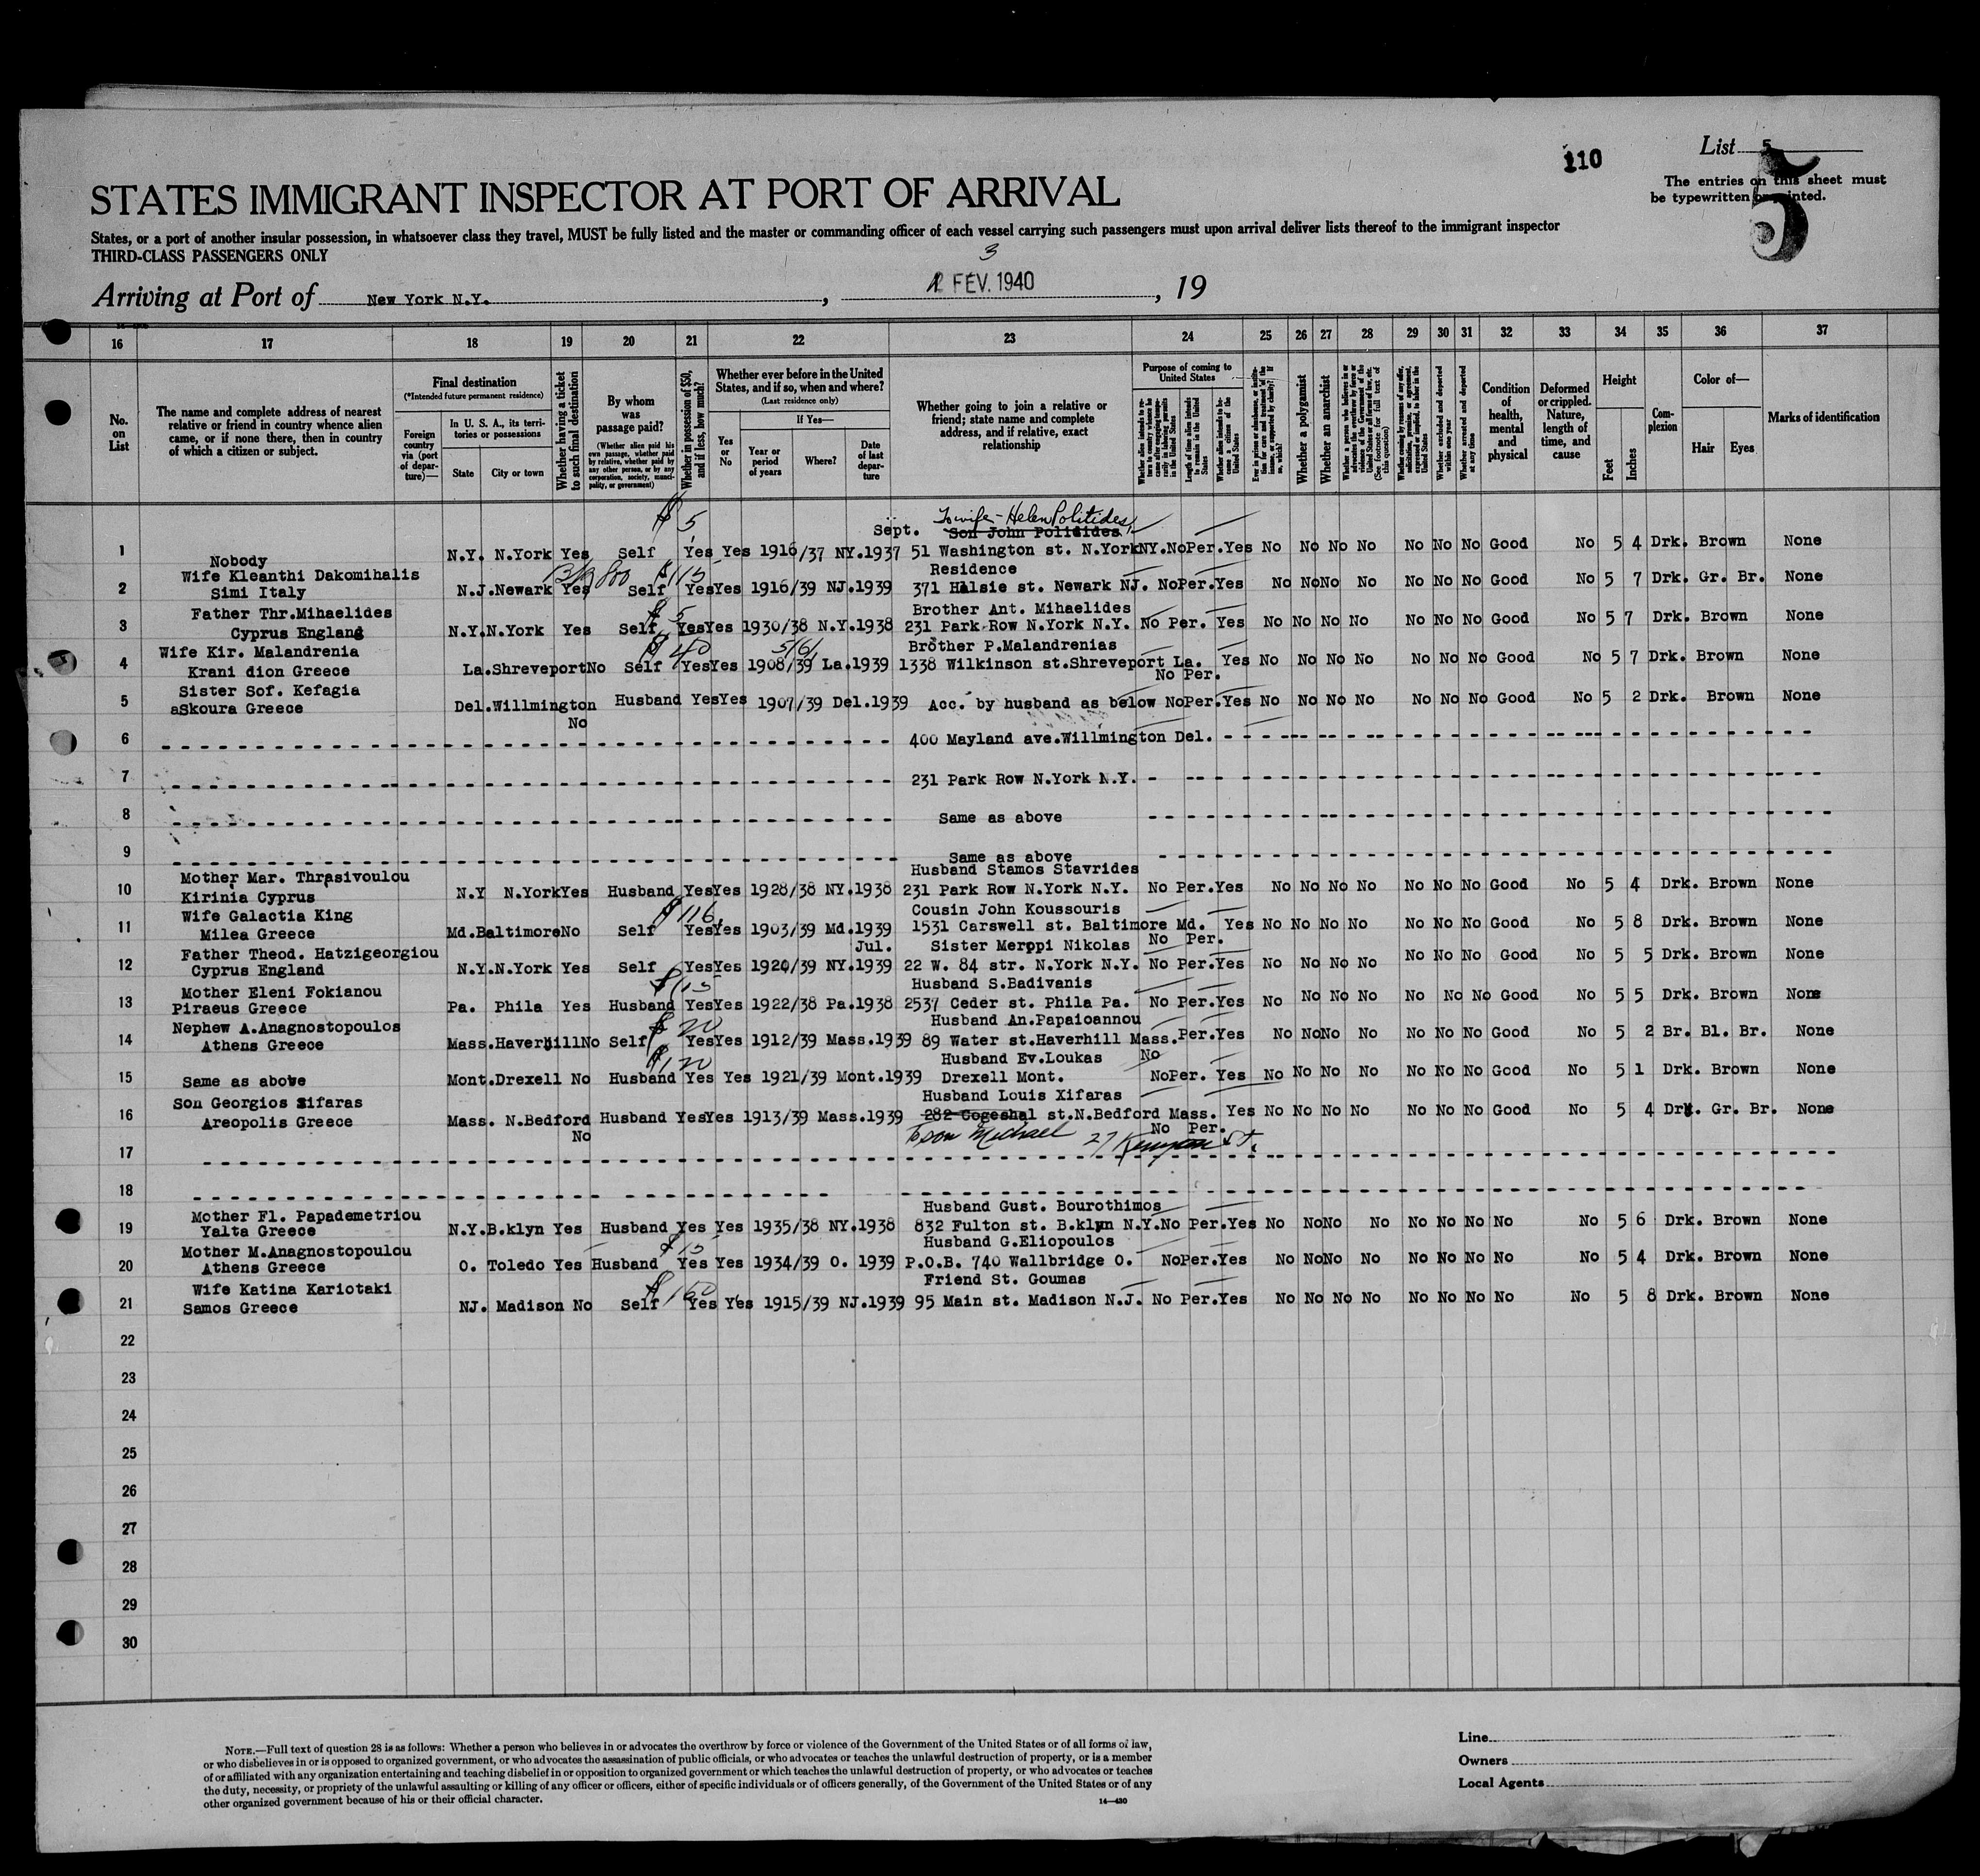 110
List 5
5
The entries on this sheet must
be typewritten or printed.
STATES IMMIGRANT INSPECTOR AT PORT OF ARRIVAL
States, or a port of another insular possession, in whatsoever class they travel, MUST be fully listed and the master or commanding officer of each vessel carrying such passengers must upon arrival deliver lists thereof to the immigrant inspector
THIRD-CLASS PASSENGERS ONLY
3
Arriving at Port of New York N.Y. , FEV. 1940 , 19
16 17 18 19 20 21 22 23 24 25 26 27 28 29 30 31 32 33 34 35 36 37
No. on List
The name and complete address of nearest relative or friend in country whence alien came, or if none there, then in country of which a citizen or subject.
Final destination
(*Intended future permanent residence)
Foreign country via (port of departure)—
In U. S. A., its territories or possessions
State
City or town
Whether having a ticket to such final destination
By whom was passage paid?
(Whether alien paid his own passage, whether paid by relative, whether paid by any other person, or by any corporation, society, municipality, or government)
Whether in possession of $50, and if less, how much?
Whether ever before in the United States, and if so, when and where?
(Last residence only)
Yes or No
If Yes—
Year or period of years
Where?
Date of last departure
Whether going to join a relative or friend; state name and complete address, and if relative, exact relationship
Purpose of coming to United States
Length of time alien intends to remain in the United States
Whether alien intends to become a citizen of the United States
Whether a polygamist
Whether an anarchist
Whether excluded and deported within one year
Whether arrested and deported at any time
Condition of health, mental and physical
Deformed or crippled. Nature, length of time, and cause
Height
Feet
Inches
Complexion
Color of—
Hair
Eyes
Marks of identification
$ 5 To wife - Helen Politides,
Sept. Son John Politides
1 Nobody N.Y. N.York Yes Self Yes Yes 1916/37 NY.1937 51 Washington st. N.York NY.No Per. Yes No No No No No No No Good No 5 4 Drk. Brown None
Wife Kleanthi Dakomihalis $115 Residence
2 Simi Italy N.J.Newark Yes Self Yes Yes 1916/39 NJ.1939 371 Halsie st. Newark NJ. No Per. Yes No No No No No No No Good No 5 7 Drk. Gr. Br. None
Father Thr.Mihaelides $ 5 Brother Ant. Mihaelides
3 Cyprus England N.Y.N.York Yes Self Yes Yes 1930/38 N.Y.1938 231 Park Row N.York N.Y. No Per. Yes No No No No No No No Good No 5 7 Drk. Brown None
Wife Kir. Malandrenia $ 40 5/6/ Brother P.Malandrenias
4 Krani dion Greece La.Shreveport No Self Yes Yes 1908/39 La.1939 1338 Wilkinson st.Shreveport La. Yes No No No No No No No Good No 5 7 Drk. Brown None
No Per.
Sister Sof. Kefagia
5 aSkoura Greece Del.Willmington Husband Yes Yes 1907/39 Del.1939 Acc. by husband as below No Per. Yes No No No No No No No Good No 5 2 Drk. Brown None
No
6 400 Mayland ave.Willmington Del.
7 231 Park Row N.York N.Y.
8 Same as above
9 Same as above
Mother Mar. Thrasivoulou Husband Stamos Stavrides
10 Kirinia Cyprus N.Y N.York Yes Husband Yes Yes 1928/38 NY.1938 231 Park Row N.York N.Y. No Per. Yes No No No No No No No Good No 5 4 Drk. Brown None
Wife Galactia King $ 116. Cousin John Koussouris
11 Milea Greece Md.Baltimore No Self Yes Yes 1903/39 Md.1939 1531 Carswell st. Baltimore Md. Yes No No No No No No No Good No 5 8 Drk. Brown None
No Per.
Father Theod. Hatzigeorgiou Jul. Sister Merppi Nikolas
12 Cyprus England N.Y.N.York Yes Self Yes Yes 1920/39 NY.1939 22 W. 84 str. N.York N.Y. No Per. Yes No No No No No No No Good No 5 5 Drk. Brown None
Mother Eleni Fokianou $ 15 Husband S.Badivanis
13 Piraeus Greece Pa. Phila Yes Husband Yes Yes 1922/38 Pa.1938 2537 Ceder st. Phila Pa. No Per. Yes No No No No No No No Good No 5 5 Drk. Brown None
Nephew A.Anagnostopoulos $ 20 Husband An.Papaioannou
14 Athens Greece Mass.Haverhill No Self Yes Yes 1912/39 Mass.1939 89 Water st.Haverhill Mass. Per. Yes No No No No No No No Good No 5 2 Br. Bl. Br. None
$ 120 Husband Ev.Loukas No
15 Same as above Mont.Drexell No Husband Yes Yes 1921/39 Mont.1939 Drexell Mont. No Per. Yes No No No No No No No Good No 5 1 Drk. Brown None
Son Georgios Xifaras Husband Louis Xifaras
16 Areopolis Greece Mass. N.Bedford Husband Yes Yes 1913/39 Mass.1939 282 Cogeshal st.N.Bedford Mass. Yes No No No No No No No Good No 5 4 Drk. Gr. Br. None
No No Per.
To son Michael 27 Kenyon St.
17
18
Mother Fl. Papademetriou Husband Gust. Bourothimos
19 Yalta Greece N.Y.B.klyn Yes Husband Yes Yes 1935/38 NY.1938 832 Fulton st. B.klyn N.Y.No Per. Yes No No No No No No No No No 5 6 Drk. Brown None
Mother M.Anagnostopoulou $ 15 Husband G.Eliopoulos
20 Athens Greece O. Toledo Yes Husband Yes Yes 1934/39 O. 1939 P.O.B. 740 Wallbridge O. No Per. Yes No No No No No No No No No 5 4 Drk. Brown None
Wife Katina Kariotaki $ 150 Friend St. Goumas
21 Samos Greece NJ. Madison No Self Yes Yes 1915/39 NJ.1939 95 Main st. Madison N.J. No Per. Yes No No No No No No No No No 5 8 Drk. Brown None
22
23
24
25
26
27
28
29
30
NOTE.—Full text of question 28 is as follows: Whether a person who believes in or advocates the overthrow by force or violence of the Government of the United States or of all forms of law,
or who disbelieves in or is opposed to organized government, or who advocates the assassination of public officials, or who advocates or teaches the unlawful destruction of property, or is a member
of or affiliated with any organization entertaining and teaching disbelief in or opposition to organized government or which teaches the unlawful destruction of property, or who advocates or teaches
the duty, necessity, or propriety of the unlawful assaulting or killing of any officer or officers, either of specific individuals or of officers generally, of the Government of the United States or of any
other organized government because of his or their official character.
14—430
Line
Owners
Local Agents